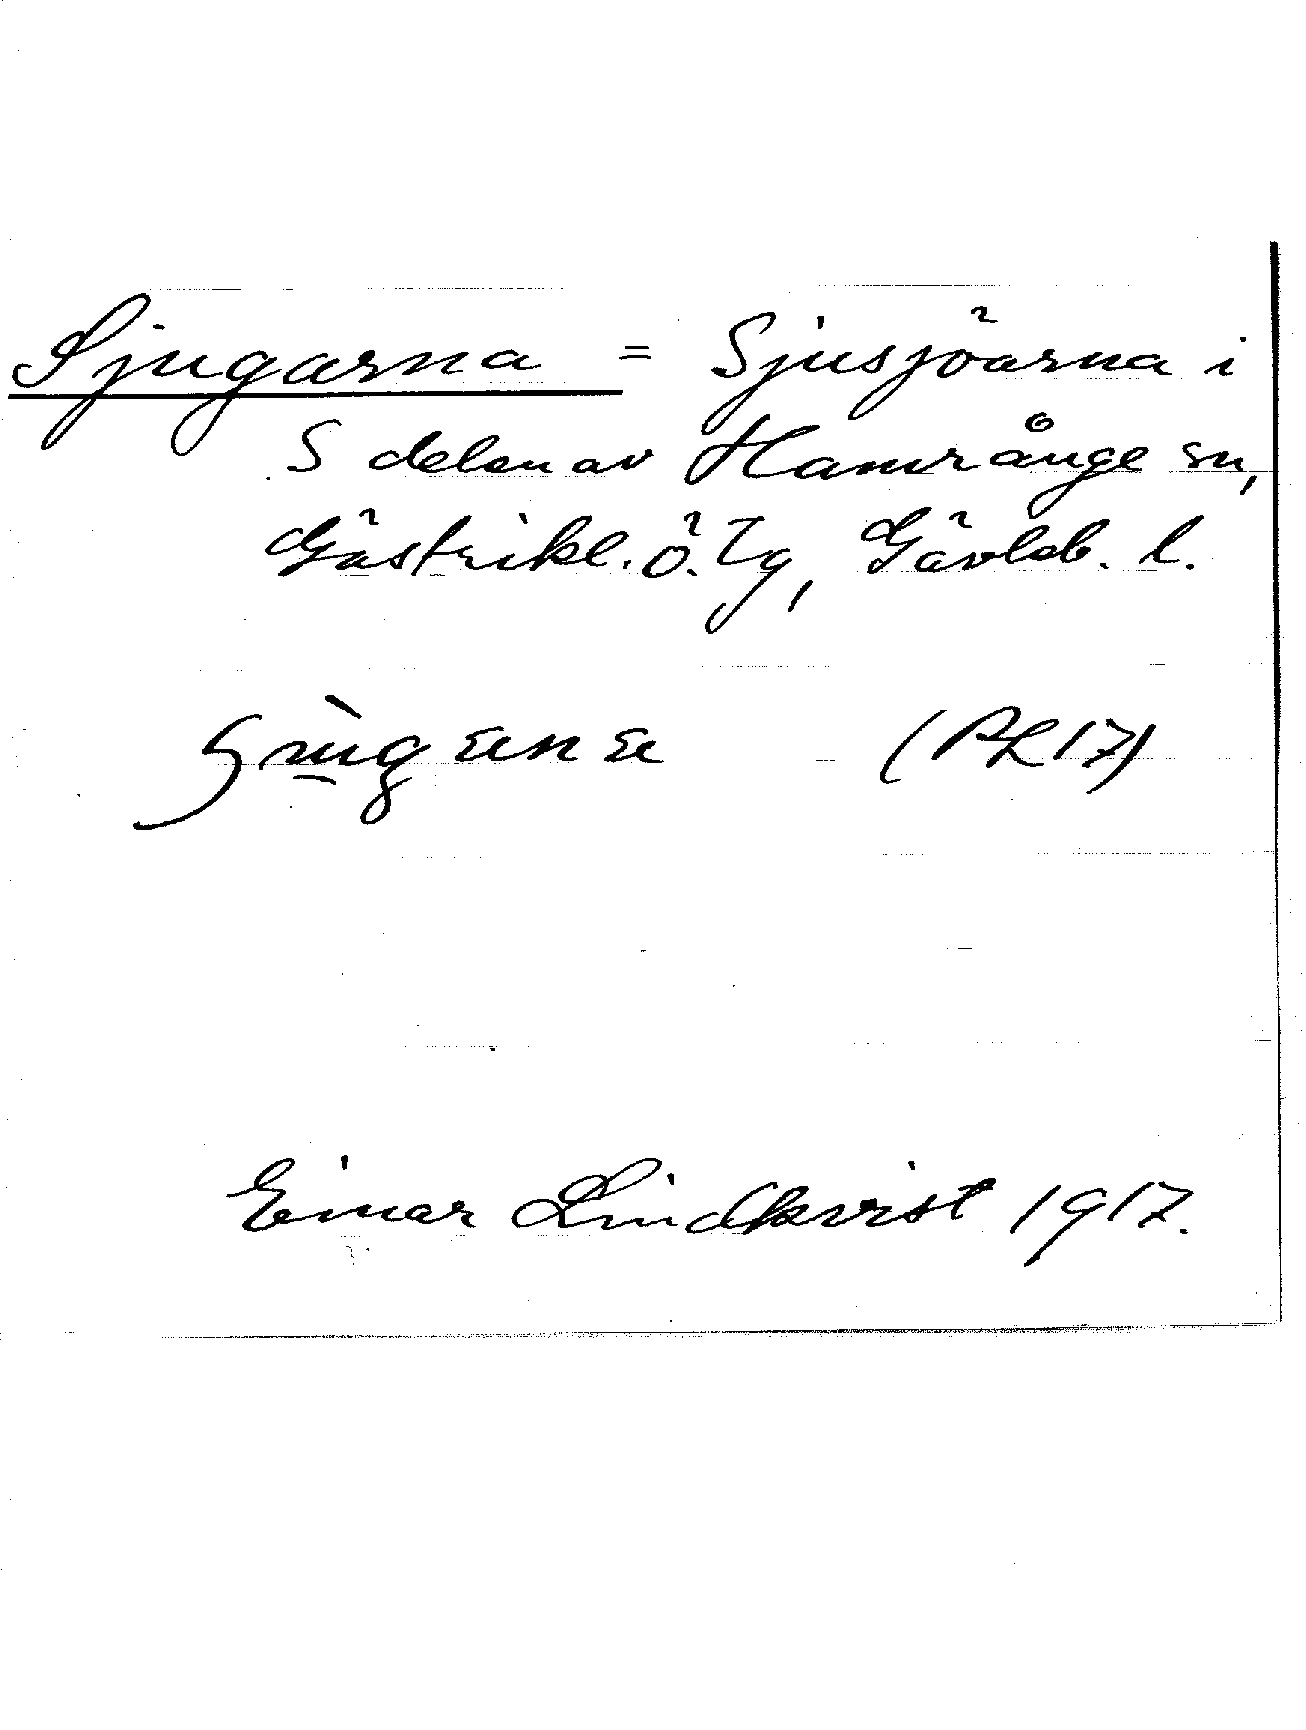 Sjugarna = Sjusjöarna i
S delen av Hamrånge sn,
Gästrikl. ö. Tg, Gävleb. l.
(PL 17)
Einar Lindkvist 1917.